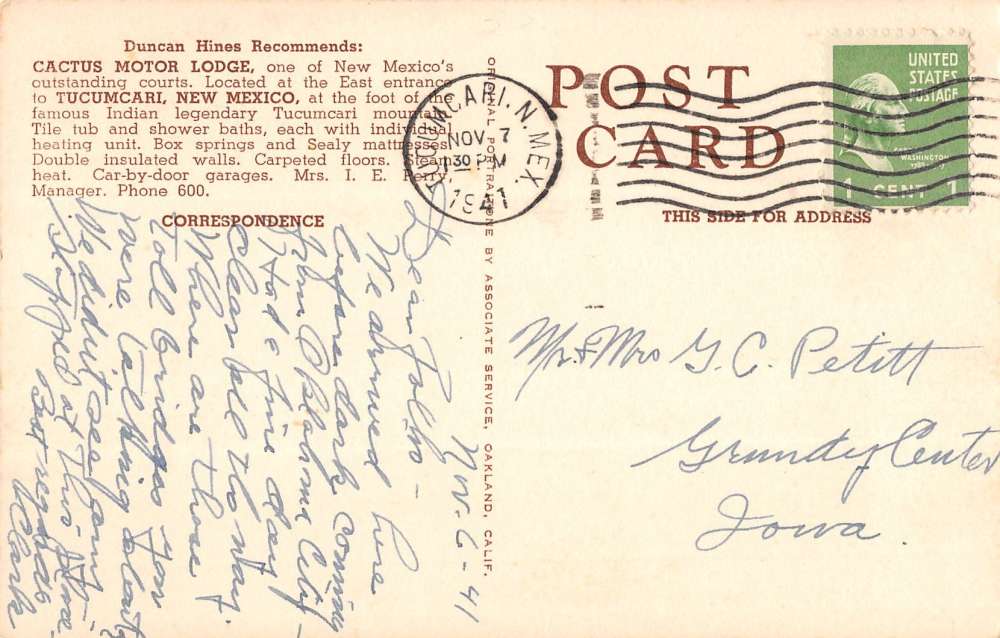 Duncan Hines Recommends:
CACTUS MOTOR LODGE, one of New Mexico's
outstanding courts. Located at the East entrance
to TUCUMCARI, NEW MEXICO, at the foot of the
famous Indian legendary Tucumcari mountain.
Tile tub and shower baths, each with individual
heating unit. Box springs and Sealy mattresses.
Double insulated walls. Carpeted floors. Steam
heat. Car-by-door garages. Mrs. I. E. Perry,
Manager. Phone 600.
CORRESPONDENCE
Nov. 6-41
Dear Folks-
We arrived here
before dark coming
from Oklahoma City-
Had a fine day-
Clear all the way.
Where are those
Toll bridges you
were talking about
We didnt see
Stopped at this place.
Best regards
POST
CARD
THIS SIDE FOR ADDRESS
TUCUMCARI. N. MEX.
NOV 7
30 PM
1941
UNITED
STATES
POSTAGE
WASHINGTON
1 CENT 1
ORIGINAL PORTRAITONE BY ASSOCIATE SERVICE, OAKLAND, CALIF.
Mr. & Mrs G. C. Petitt
Grundy Center
Iowa.